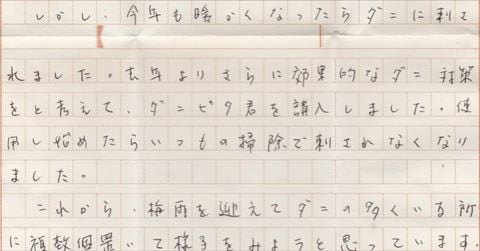 しかし、今年も暖かくなったらダニに刺さ
れました。去年よりさらに効果的なダニ対策
をと考えて、ダニピタ君を購入しました。使
用し始めたらいつもの掃除で刺されなくなり
ました。
これから、梅雨を迎えてダニの多くいる所
に複数個置いて様子をみようと思っています。